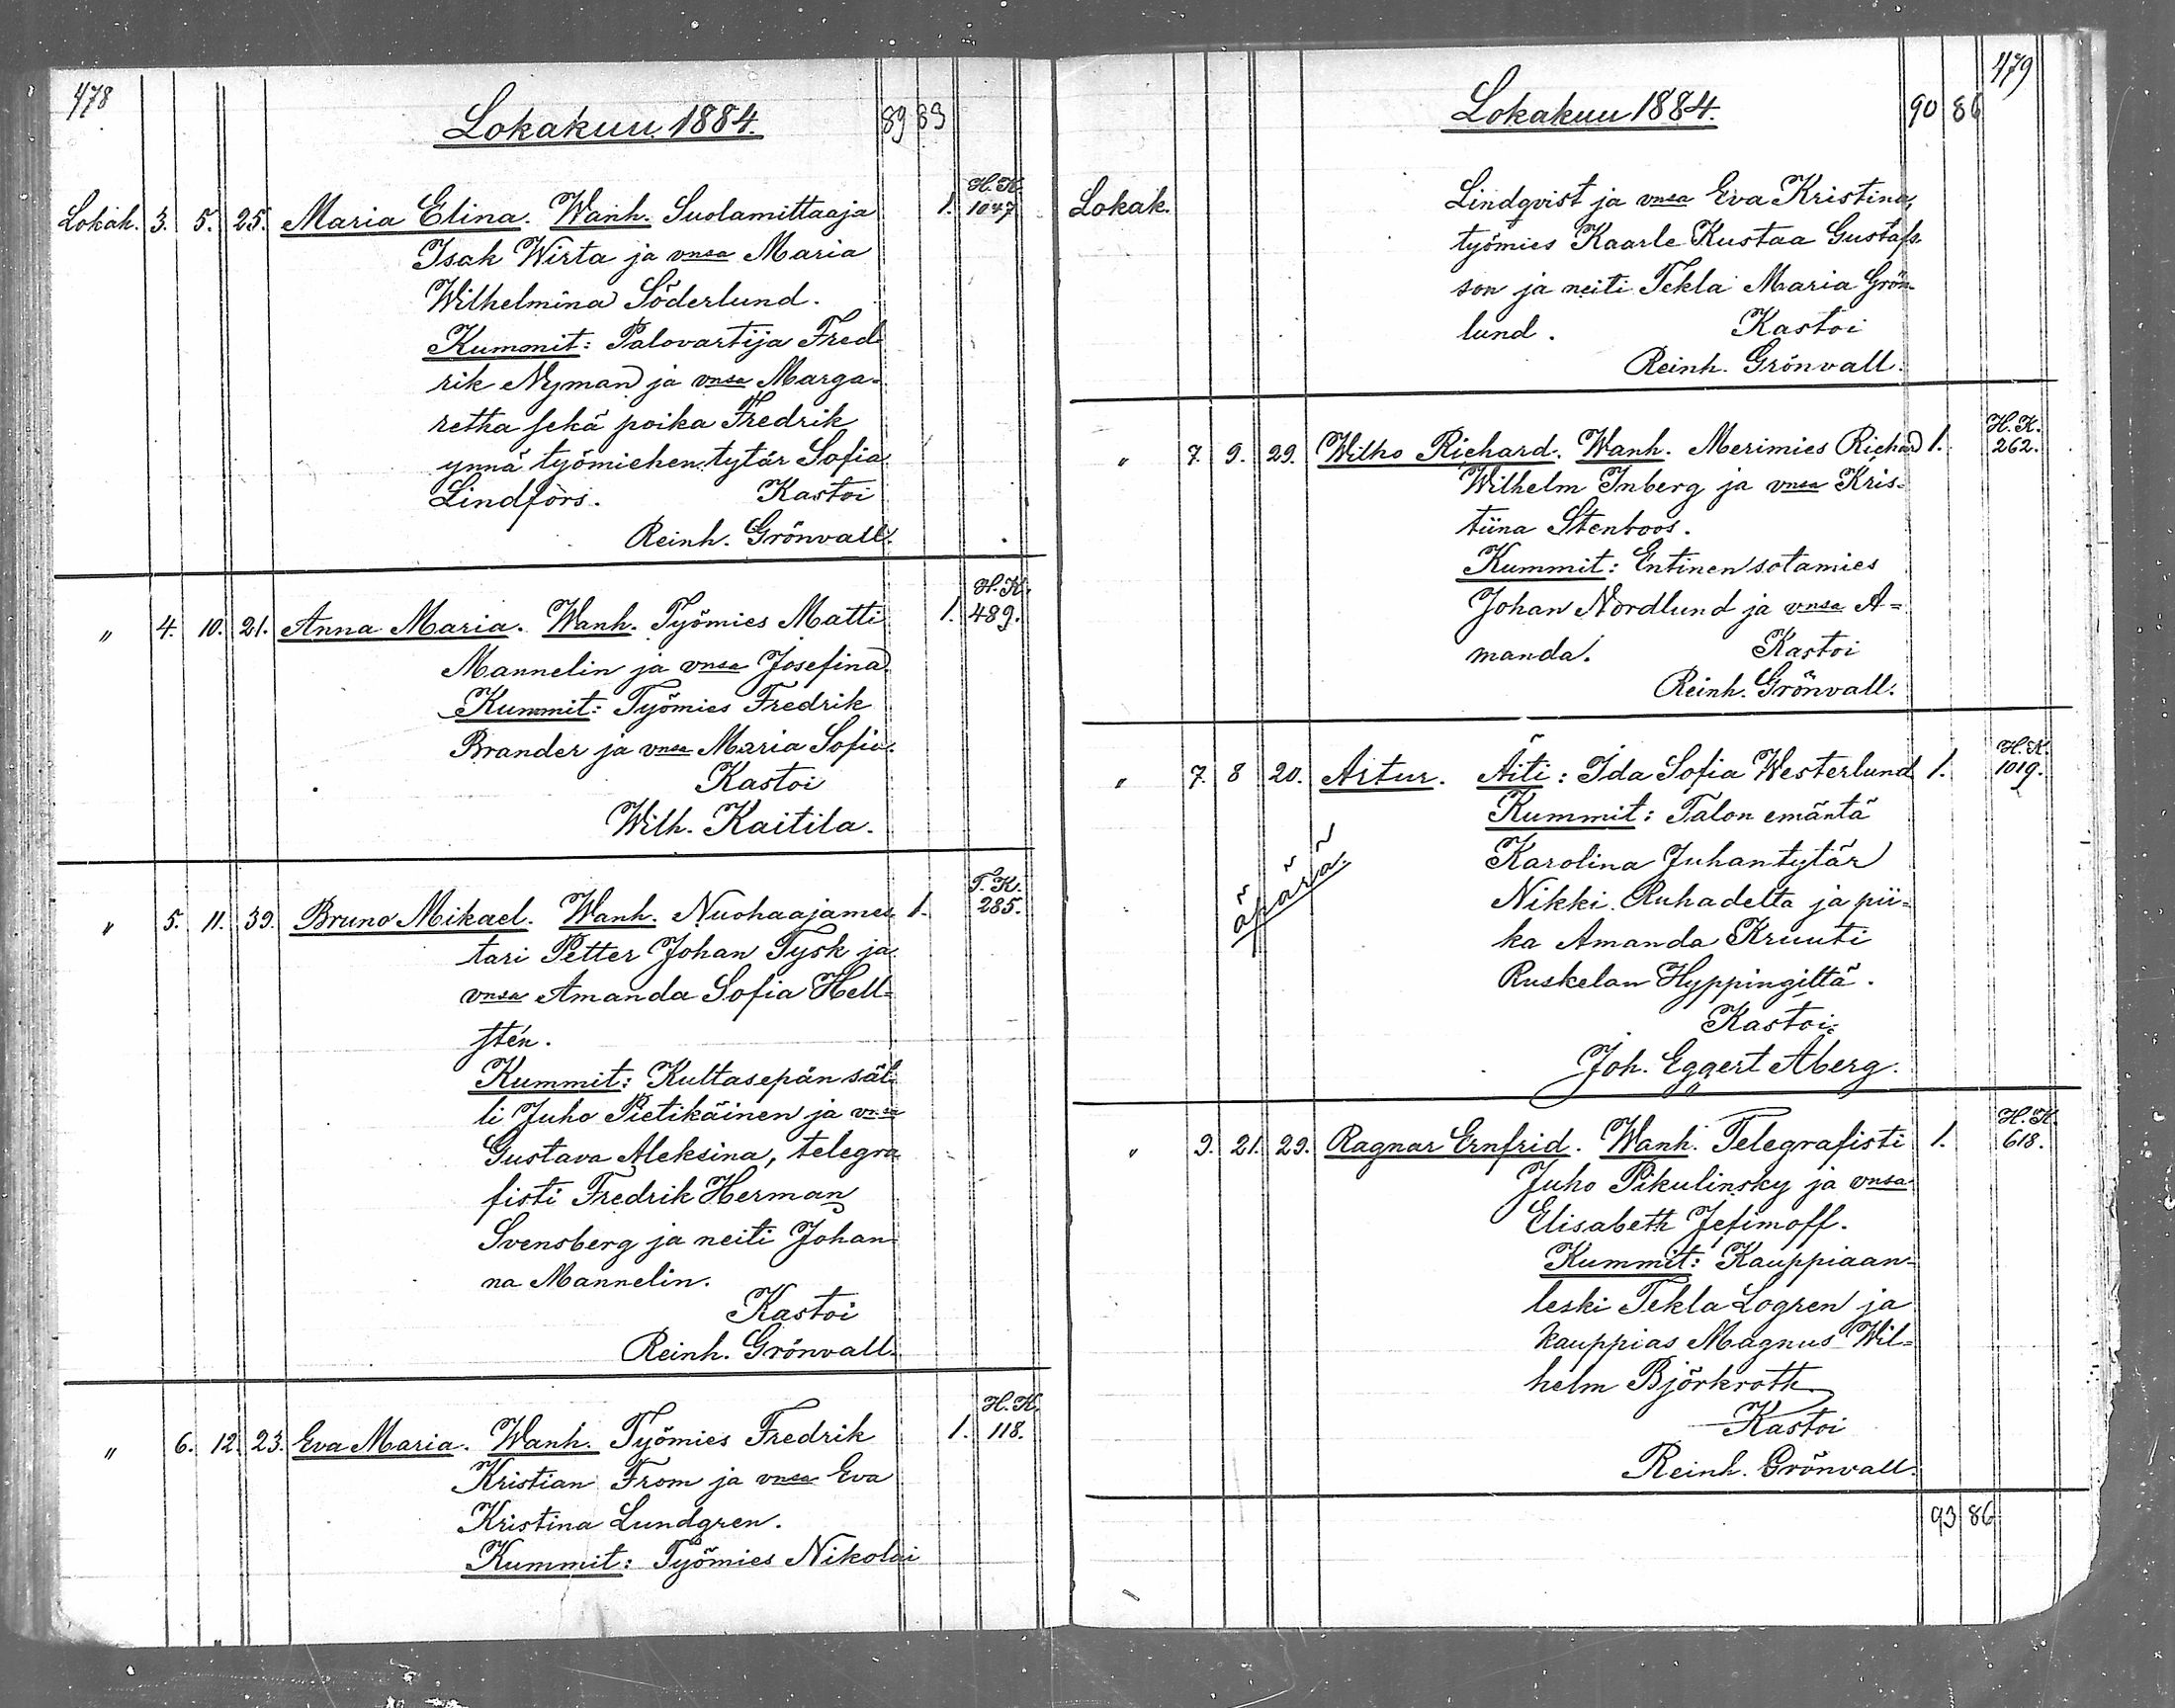 478
Lokakuu 1884. 89 83
H. K.
Lokak. 3. 5. 25. Maria Elina. Wanh. Suolamittaaja 1. 1047
Isak Wirta ja vnsa Maria
Wilhelmina Söderlund.
Kummit: Palovartija Fred
rik Nyman ja vnsa Marga-
retha sekä poika Fredrik
ynnä työmiehen tytär Sofia
Lindfors. Kastoi
Reinh. Grönvall.
H. K.
" 4. 10. 21. Anna Maria. Wanh. Työmies Matti 1. 489.
Mannelin ja vnsa Josefina.
Kummit: Työmies Fredrik
Brander ja vnsa Maria Sofia.
Kastoi
Wilh. Kaitila.
T. K.
" 5. 11. 39. Bruno Mikael. Wanh. Nuohaajames 1. 285.
tari Petter Johan Tysk ja
vnsa Amanda Sofia Hell-
stén.
Kummit: Kultasepän säl-
li Juho Pietikäinen ja vnsa
Gustava Aleksina, telegra
fisti Fredrik Herman
Svensberg ja neiti Johan
na Mannelin.
Kastoi
Reinh. Grönvall.
H. K.
" 6. 12. 23. Eva Maria. Wanh. Työmies Fredrik 1. 118.
Kristian From ja vnsa Eva
Kristina Lundgren.
Kummit: Työmies Nikolai
479
Lokakuu 1884. 90 86
Lokak. Lindqvist ja vnsa Eva Kristina,
työmies Kaarle Kustaa Gustafs-
son ja neiti Tekla Maria Grön-
lund. Kastoi
Reinh. Grönvall.
H. K.
" 7. 9. 29. Wilho Richard. Wanh. Merimies Richard 1. 262.
Wilhelm Inberg ja vnsa Kris-
tiina Stenroos.
Kummit: Entinen sotamies
Johan Nordlund ja vnsa A=
manda. Kastoi
Reinh. Grönvall.
H. K.
" 7. 8 20. Artur. Äiti: Ida Sofia Westerlund 1. 1019.
Kummit: Talon emäntä
äpärä Karolina Juhantytär
Nikki Ruhadelta ja pii-
ka Amanda Kruuti
Ruskelan Hyppingiltä.
Kastoi
Joh. Eggert Aberg.
H. K.
" 9. 21. 29. Ragnar Ernfrid. Wanh. Telegrafisti 1. 618.
Juho Pikulinsky ja vnsa
Elisabeth Jefimoff.
Kummit: Kauppiaan-
leski Tekla Logren ja
kauppias Magnus Wil-
helm Björkroth.
Kastoi
Reinh. Grönvall.
93 86